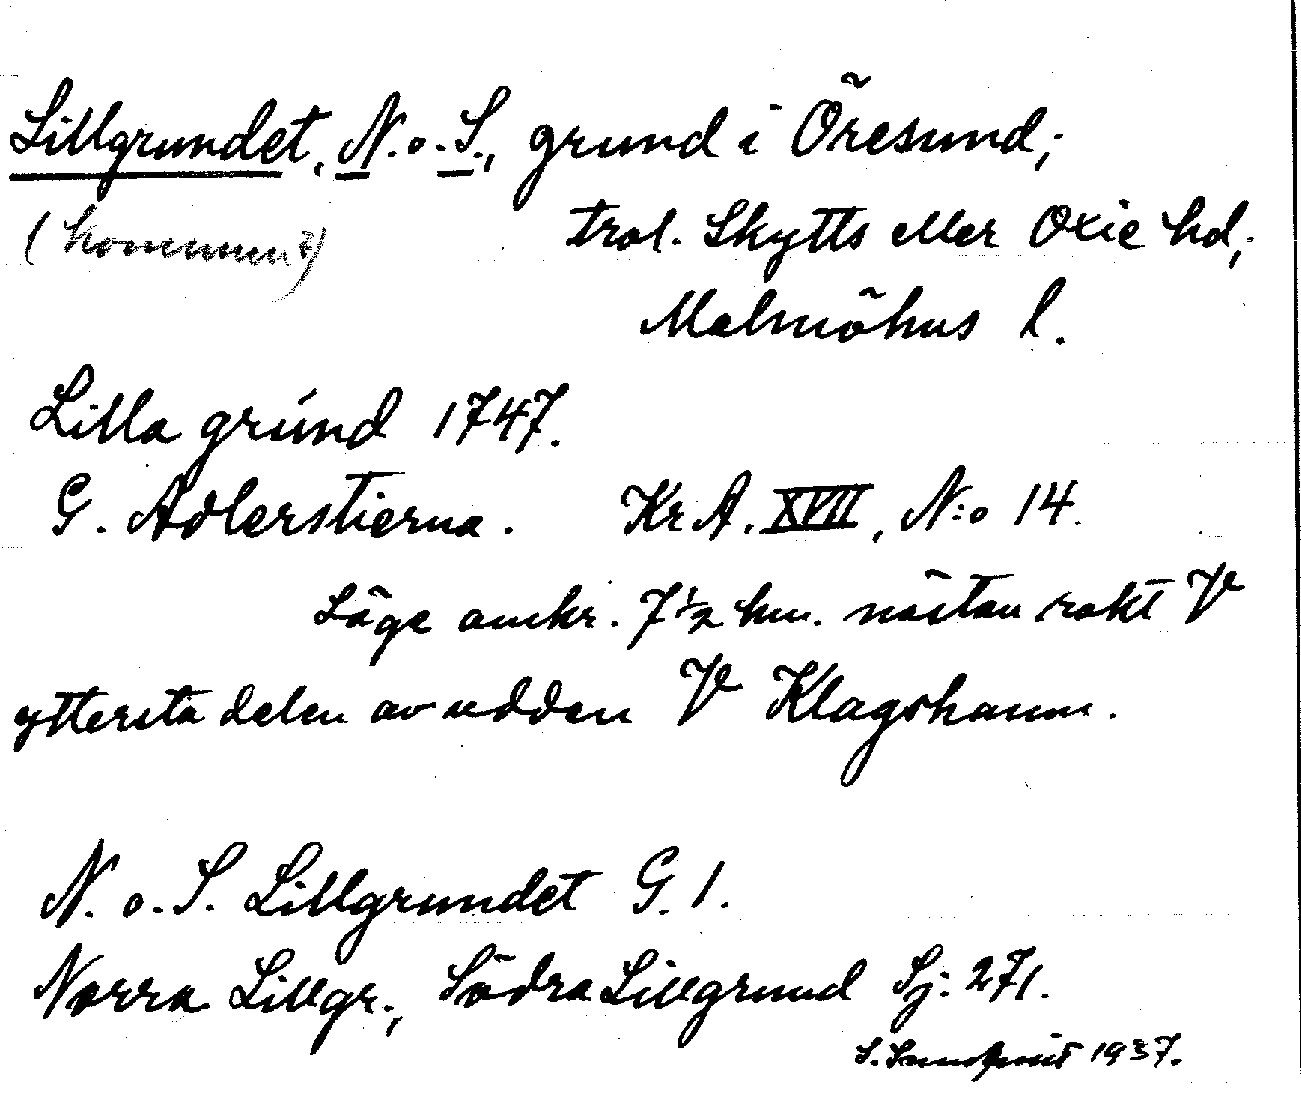 Lillgrundet, N. o. S., grund i Öresund;
(kommun?) trol. Skytts eller Oxie hd;
Malmöhus l.
Lilla grúnd 1747.
G. Adlerstierna. Kr A. XVII, N:o 14.
Läge omkr. 7 1/2 km. nästan rakt V
yttersta delen av udden V Klagshamn.
N. o. S. Lillgrundet G. 1.
Norra Lillgr., Södra Lillgrund Sj: 271.
S. Sundqvist 1937.